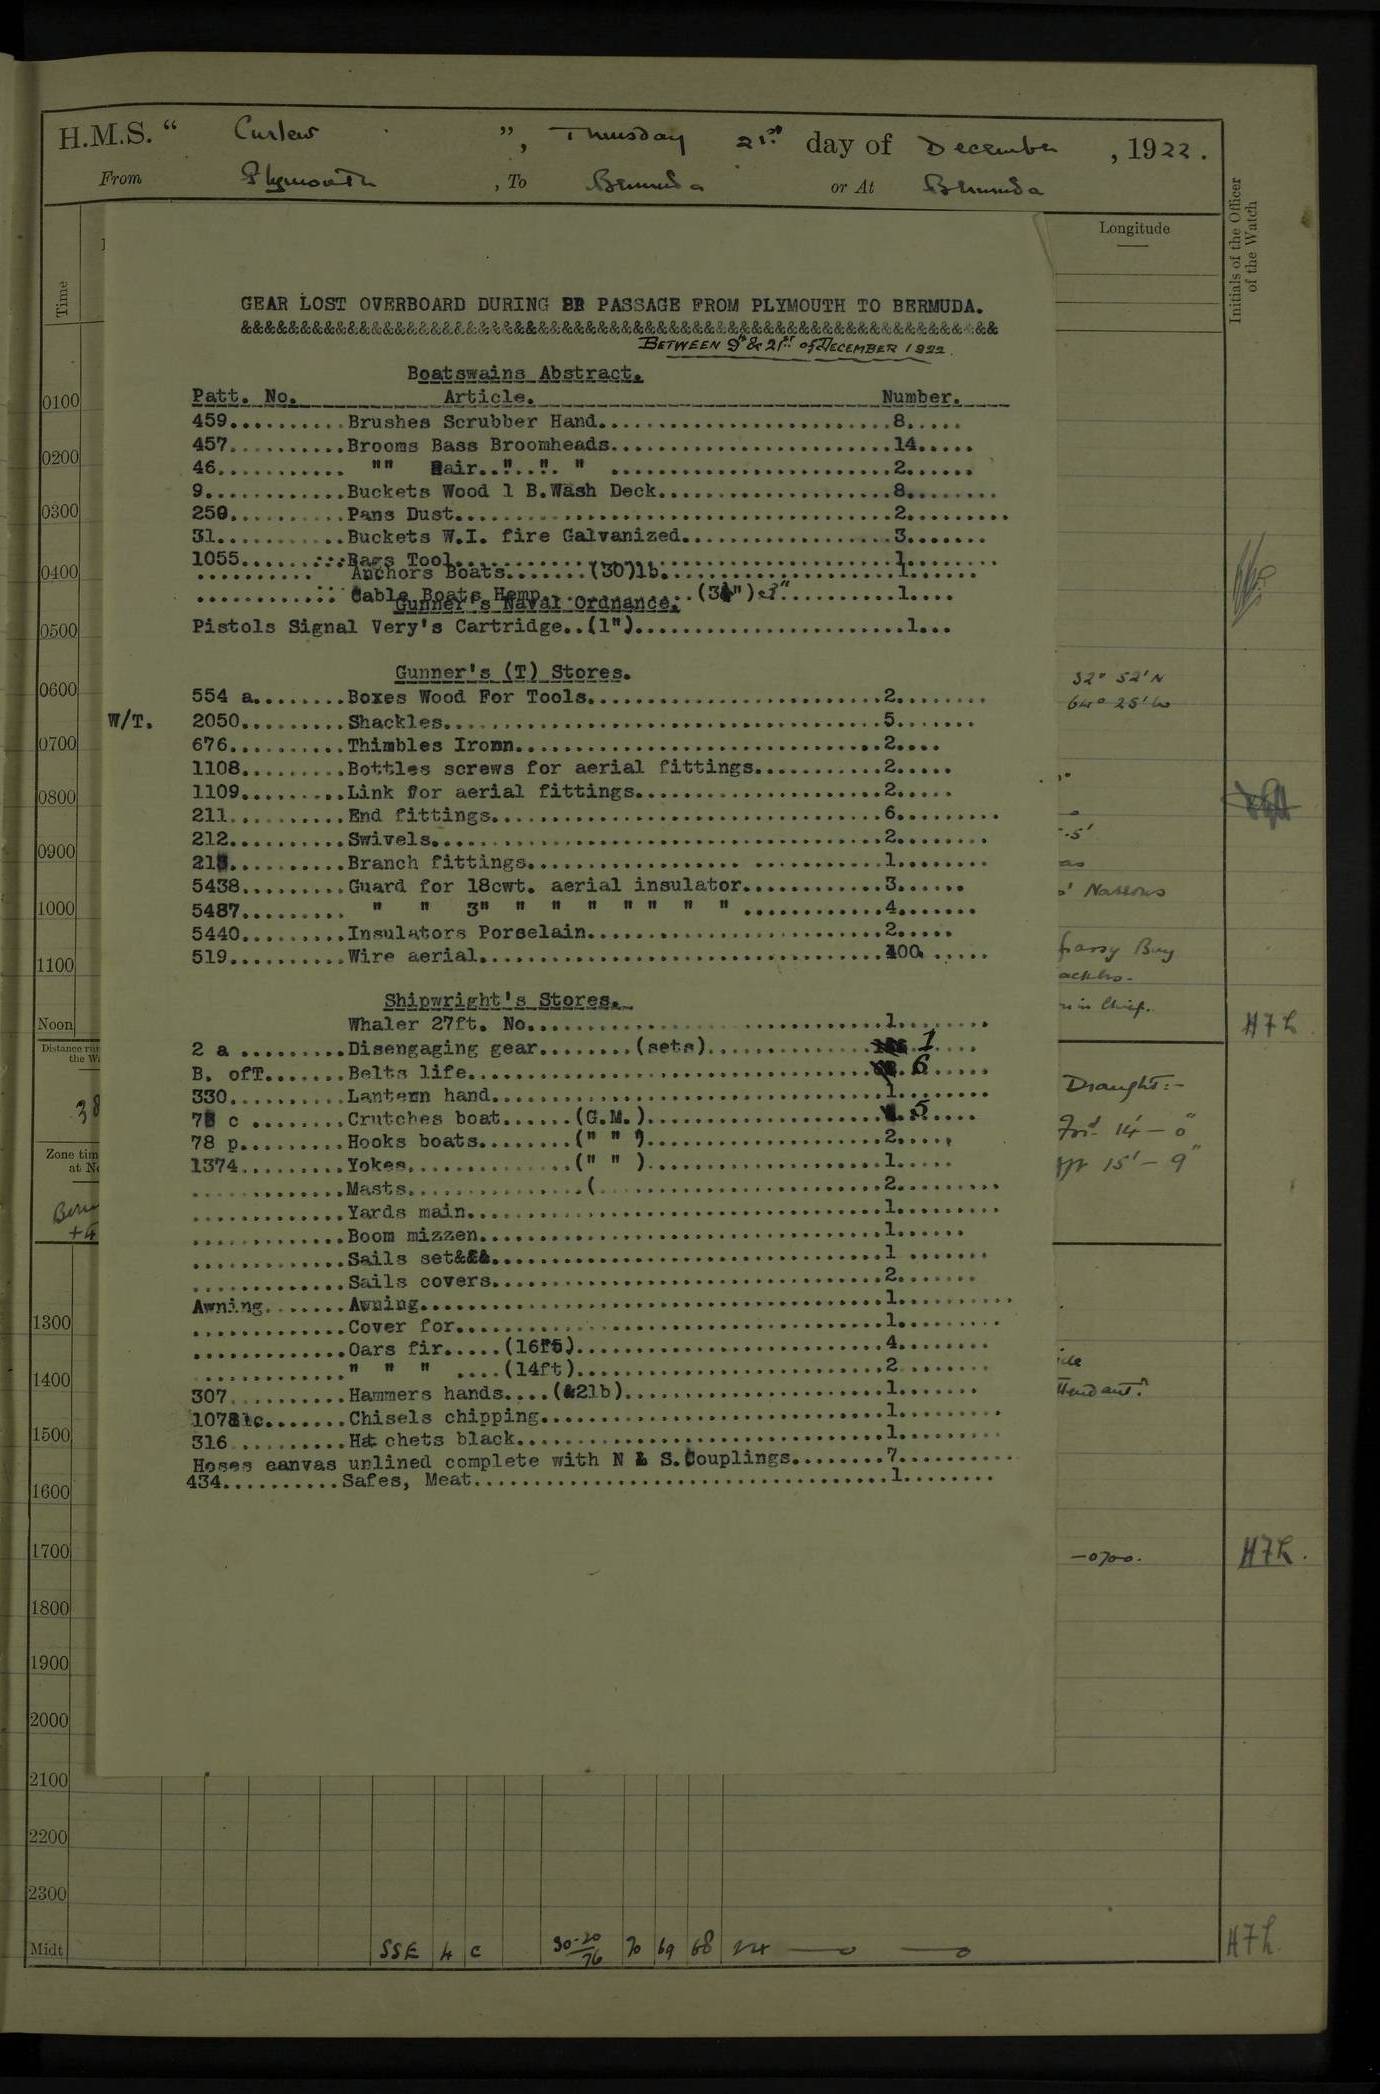 H.M.S. " Curlew ", Thursday 21st. day of December, 1922.
From Plymouth, To Bermuda or At Bermuda
Time
Longitude
Initials of the Officer of the Watch
GEAR LOST OVERBOARD DURING PASSAGE FROM PLYMOUTH TO BERMUDA.
&&&&&&&&&&&&&&&&&&&&&&&&&&&&&&&&&&&&&&&&&&&&&&&&&&&&&&&&&&&&&&&&
BETWEEN 9th & 21st of DECEMBER 1922.
Boatswains Abstract.
Patt. No. Article. Number.
459..........Brushes Scrubber Hand.........................8.....
457..........Brooms Bass Broomheads........................14.....
46........... "" Hair.."..". " ........................2......
9............Buckets Wood 1 B.Wash Deck....................8........
250..........Pans Dust.....................................2.........
31...........Buckets W.I. fire Galvanized..................3.......
1055......:::Bags Tool.....................................1........
.......... Anchors Boats.......(30)lb.....................1......
...........: Cable Boats Hemp.............(3½")..........1....
Gunner's Naval Ordnance.
Pistols Signal Very's Cartridge..(1").......................1...
Gunner's (T) Stores.
554 a........Boxes Wood For Tools.........................2........
W/T. 2050.........Shackles.....................................5.......
676..........Thimbles Iron...............................2....
1108.........Bottles screws for aerial fittings...........2.....
1109.........Link for aerial fittings.....................2.....
211..........End fittings.................................6.........
212..........Swivels......................................2........
213..........Branch fittings.............................1........
5438.........Guard for 18cwt. aerial insulator............3......
5487......... " " 3" " " " " " " " ............4.......
5440.........Insulators Porselain.........................2.....
519..........Wire aerial..................................400 .....
Shipwright's Stores.
Whaler 27ft. No..............................1........
2 a .........Disengaging gear........(sets).............. 1....
B. ofT.......Belts life................................... 6......
330..........Lantern hand.................................1........
78 c ........Crutches boat......(G.M.).................... 5....
78 p.........Hooks boats........(" " )....................2.....
1374.........Yokes..............(" " )....................1.....
.............Masts...............(........................2.........
.............Yards main...................................1.........
.............Boom mizzen..................................1......
.............Sails set&&&.................................1 .......
.............Sails covers.................................2.......
Awning.......Awning.......................................1..........
.............Cover for....................................1.........
.............Oars fir.....(16ft)..........................4........
............." " " ....(14ft)..........................2........
307..........Hammers hands....(2lb)......................1.......
1078c.......Chisels chipping.............................1.........
316..........Hat chets black...............................1.........
Hoses canvas unlined complete with N & S.Couplings........7..........
434..........Safes, Meat...................................1........
0100
0200
0300
0400
0500
0600
0700
0800
0900
1000
1100
Noon
32° 52' N
64° 25' W
-5'
Nassons
Grassy Bay
in Chief.
H7L
Distance run
the
38
Zone time
at
+4
Draught:-
For'd 14' - 0"
Aft 15' - 9"
1300
1400
1500
1600
1700
1800
1900
2000
2100
2200
2300
Midt
-0700.
H7L.
SSE 4 c 30-20/76 70 69 68
H7L